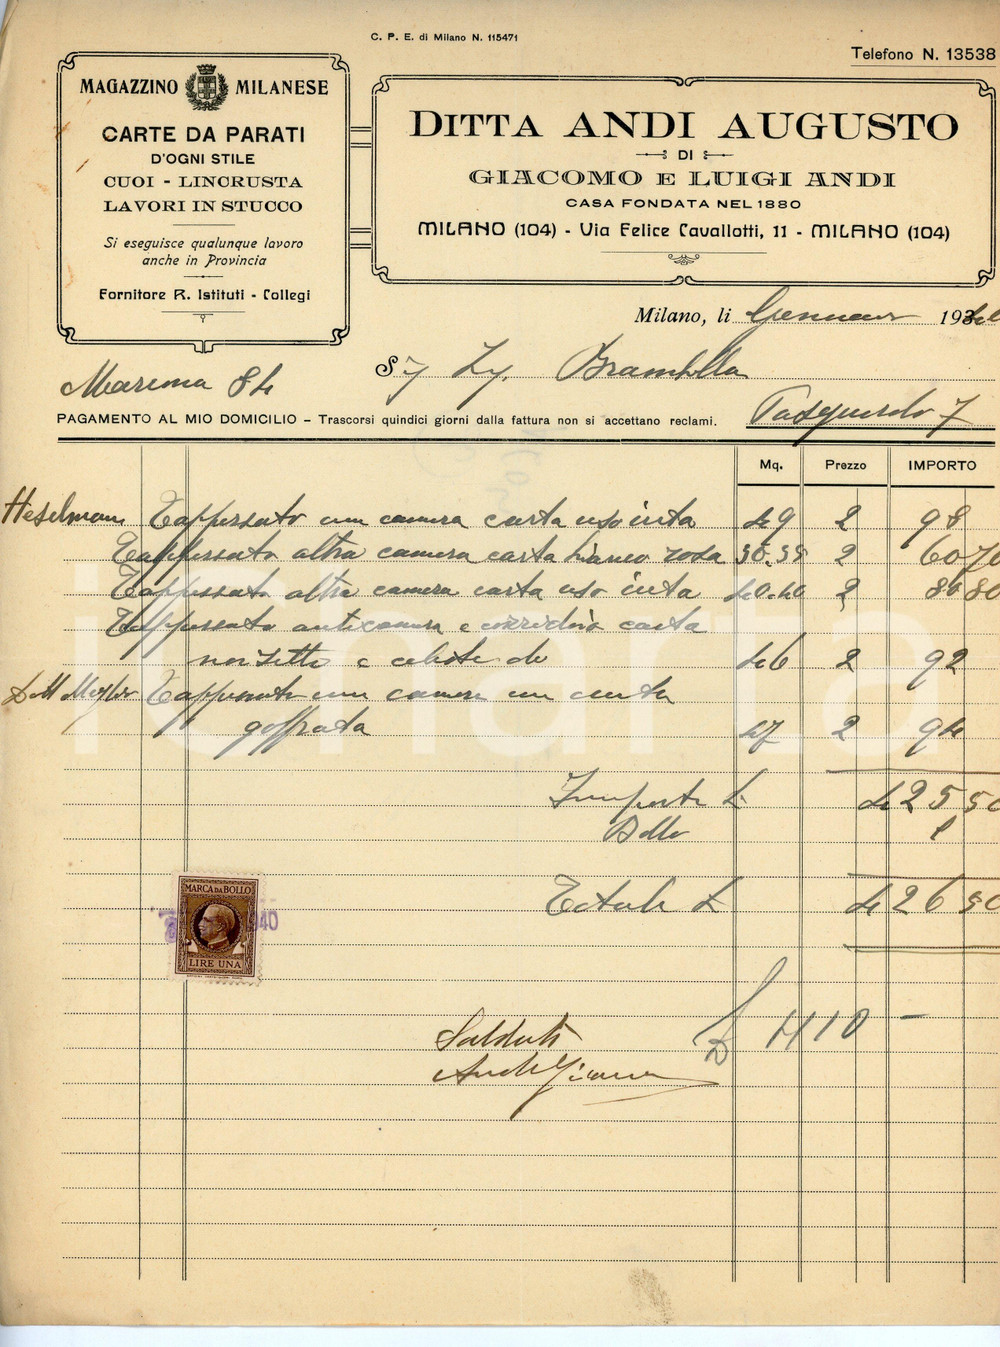 C. P. E. di Milano N. 115471
Telefono N. 13538
MAGAZZINO MILANESE
CARTE DA PARATI
D'OGNI STILE
CUOI - LINCRUSTA
LAVORI IN STUCCO
Si eseguisce qualunque lavoro
anche in Provincia
Fornitore R. Istituti - Collegi
DITTA ANDI AUGUSTO
DI
GIACOMO E LUIGI ANDI
CASA FONDATA NEL 1880
MILANO (104) - Via Felice Cavallotti, 11 - MILANO (104)
Milano, li Gennaio 1940
Sig Brambilla
PAGAMENTO AL MIO DOMICILIO – Trascorsi quindici giorni dalla fattura non si accettano reclami.
Mq. Prezzo IMPORTO
Tappezzato una camera carta uso 49 2 98
Tappezzato altra camera carta bianco rosa 30.35 2 60 70
Tappezzato altra camera carta uso 40.40 2 80 80
Tappezzato anticamera e corridoio carta
e celeste 46 2 92
Tappezzato una camera
goffrata 47 2 94
Importo L 425 50
Bollo 1
Totale L 426 50
MARCA DA BOLLO
LIRE UNA
940
Saldato
£ 410 –
iCharta